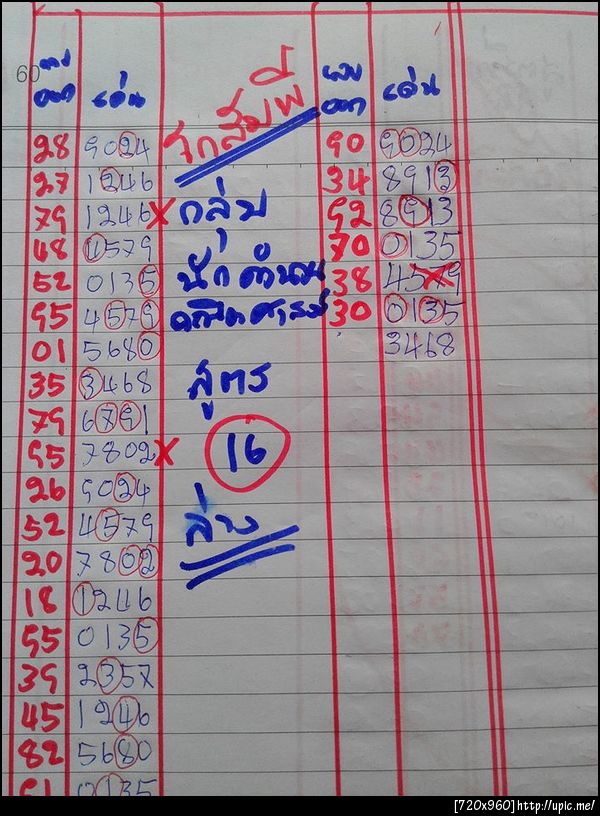 60
เลข ออก เด่น
28 9024
27 1246
79 1246 X
48 4579
52 0135
95 4579
01 5680
35 3468
79 6791
95 7802 X
26 9024
52 4579
20 7802
18 1246
95 0135
39 2357
45 1246
82 5680
0135
กลุ่ม
นักคำนวน
คณิตศาสตร์
สูตร
16
ล่าง
เลข ออก เด่น
90 9024
34 8913
92 8913
70 0135
38 4579
30 0135
3468
[720x960]http://upic.me/